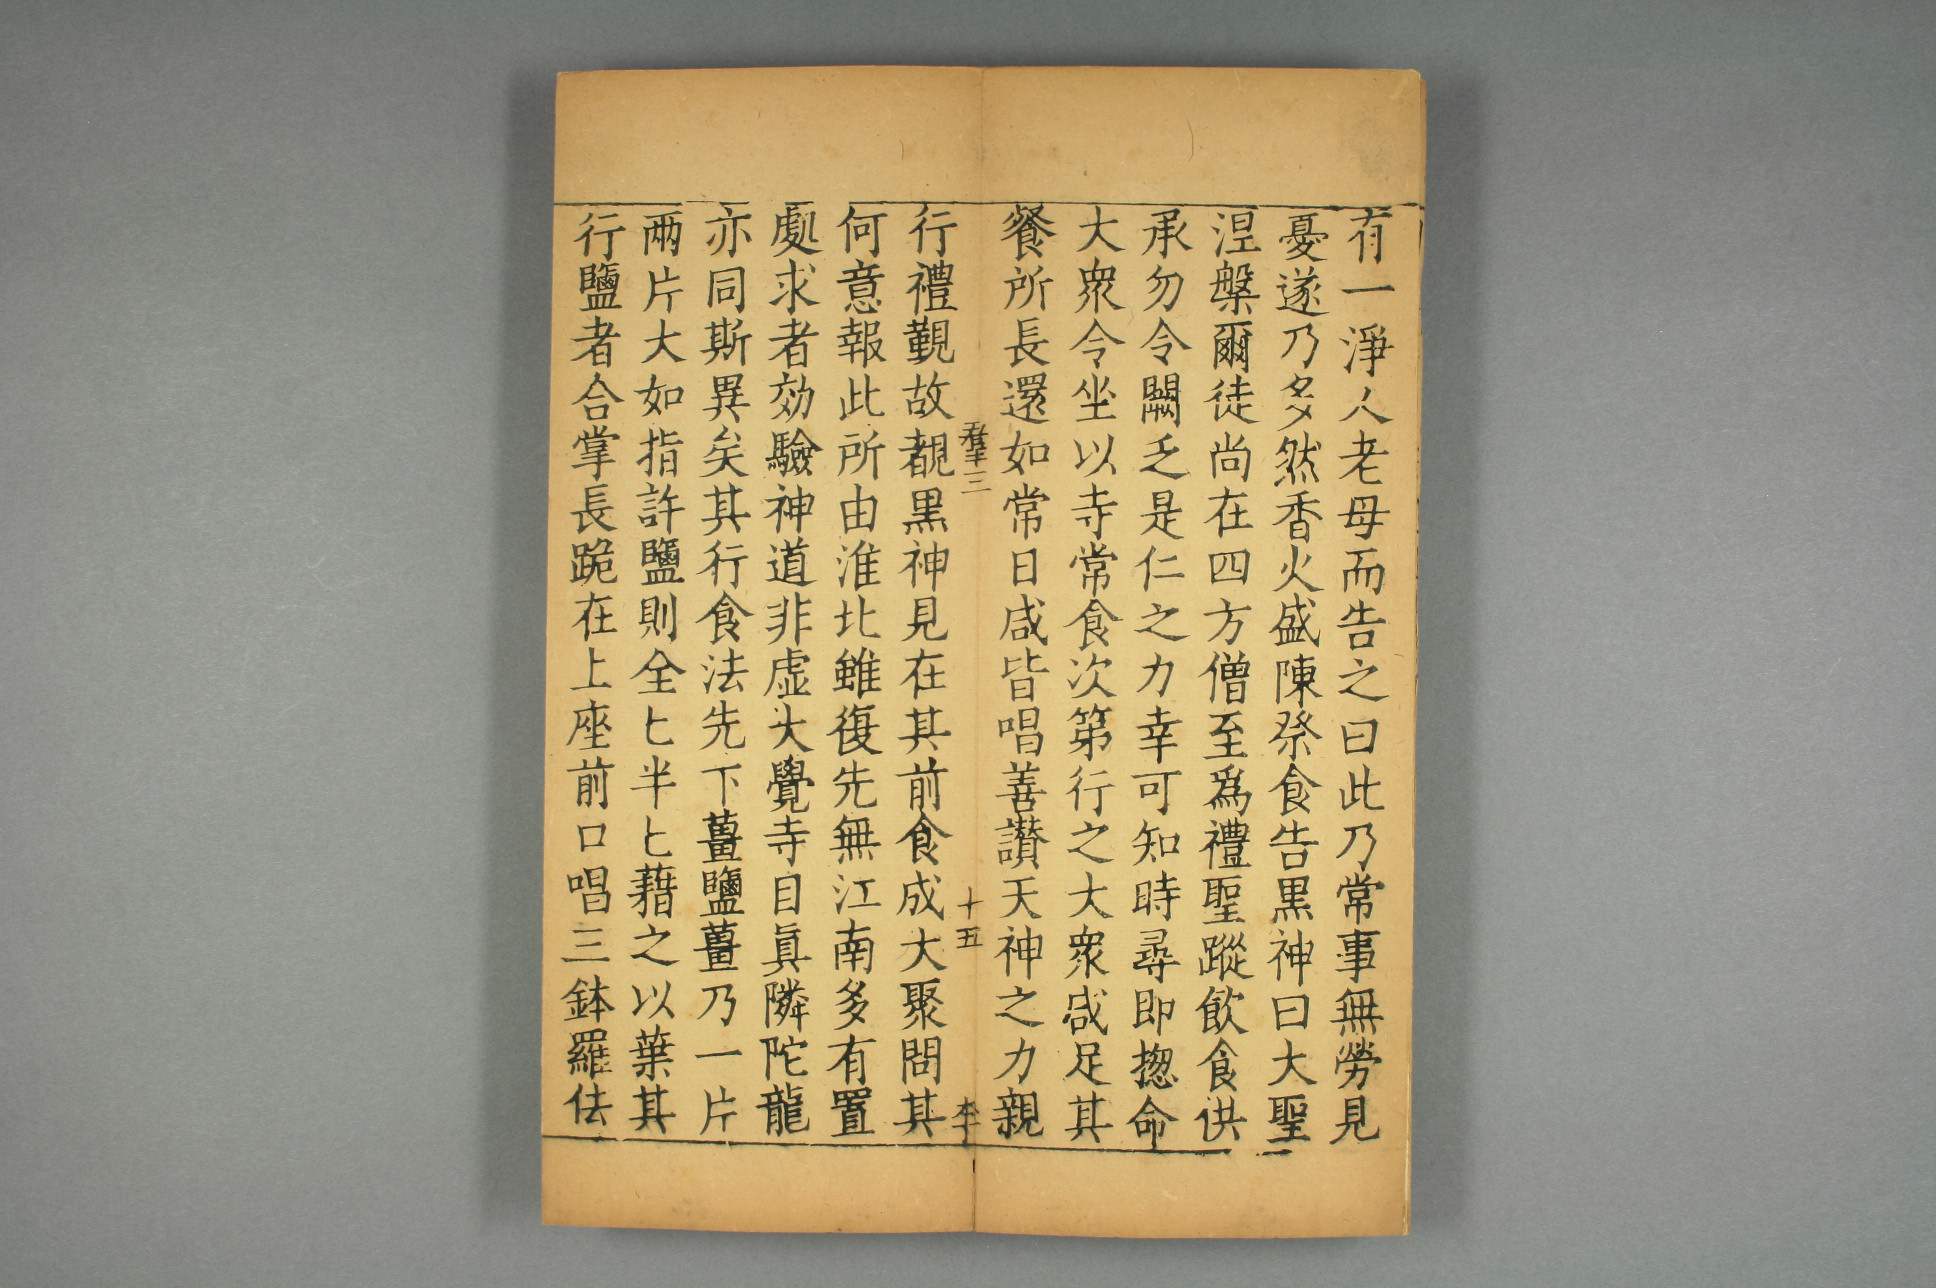 有一淨人老母而告之曰此乃常事無勞見
憂遂乃多然香火盛陳祭食告黒神曰大聖
涅槃爾徒尚在四方僧至爲禮聖蹤飲食供
承勿令闕乏是仁之力幸可知時尋即揔命
大衆令坐以寺常食次第行之大衆咸足其
餐所長還如常日咸皆唱善讃天神之力親
羣三 十五 李
行禮覲故覩黒神見在其前食成大聚問其
何意報此所由淮北雖復先無江南多有置
處求者効驗神道非虛大覺寺目眞隣陀龍
亦同斯異矣其行食法先下薑鹽薑乃一片
兩片大如指許鹽則全匕半匕藉之以葉其
行鹽者合掌長跪在上座前口唱三鉢羅佉